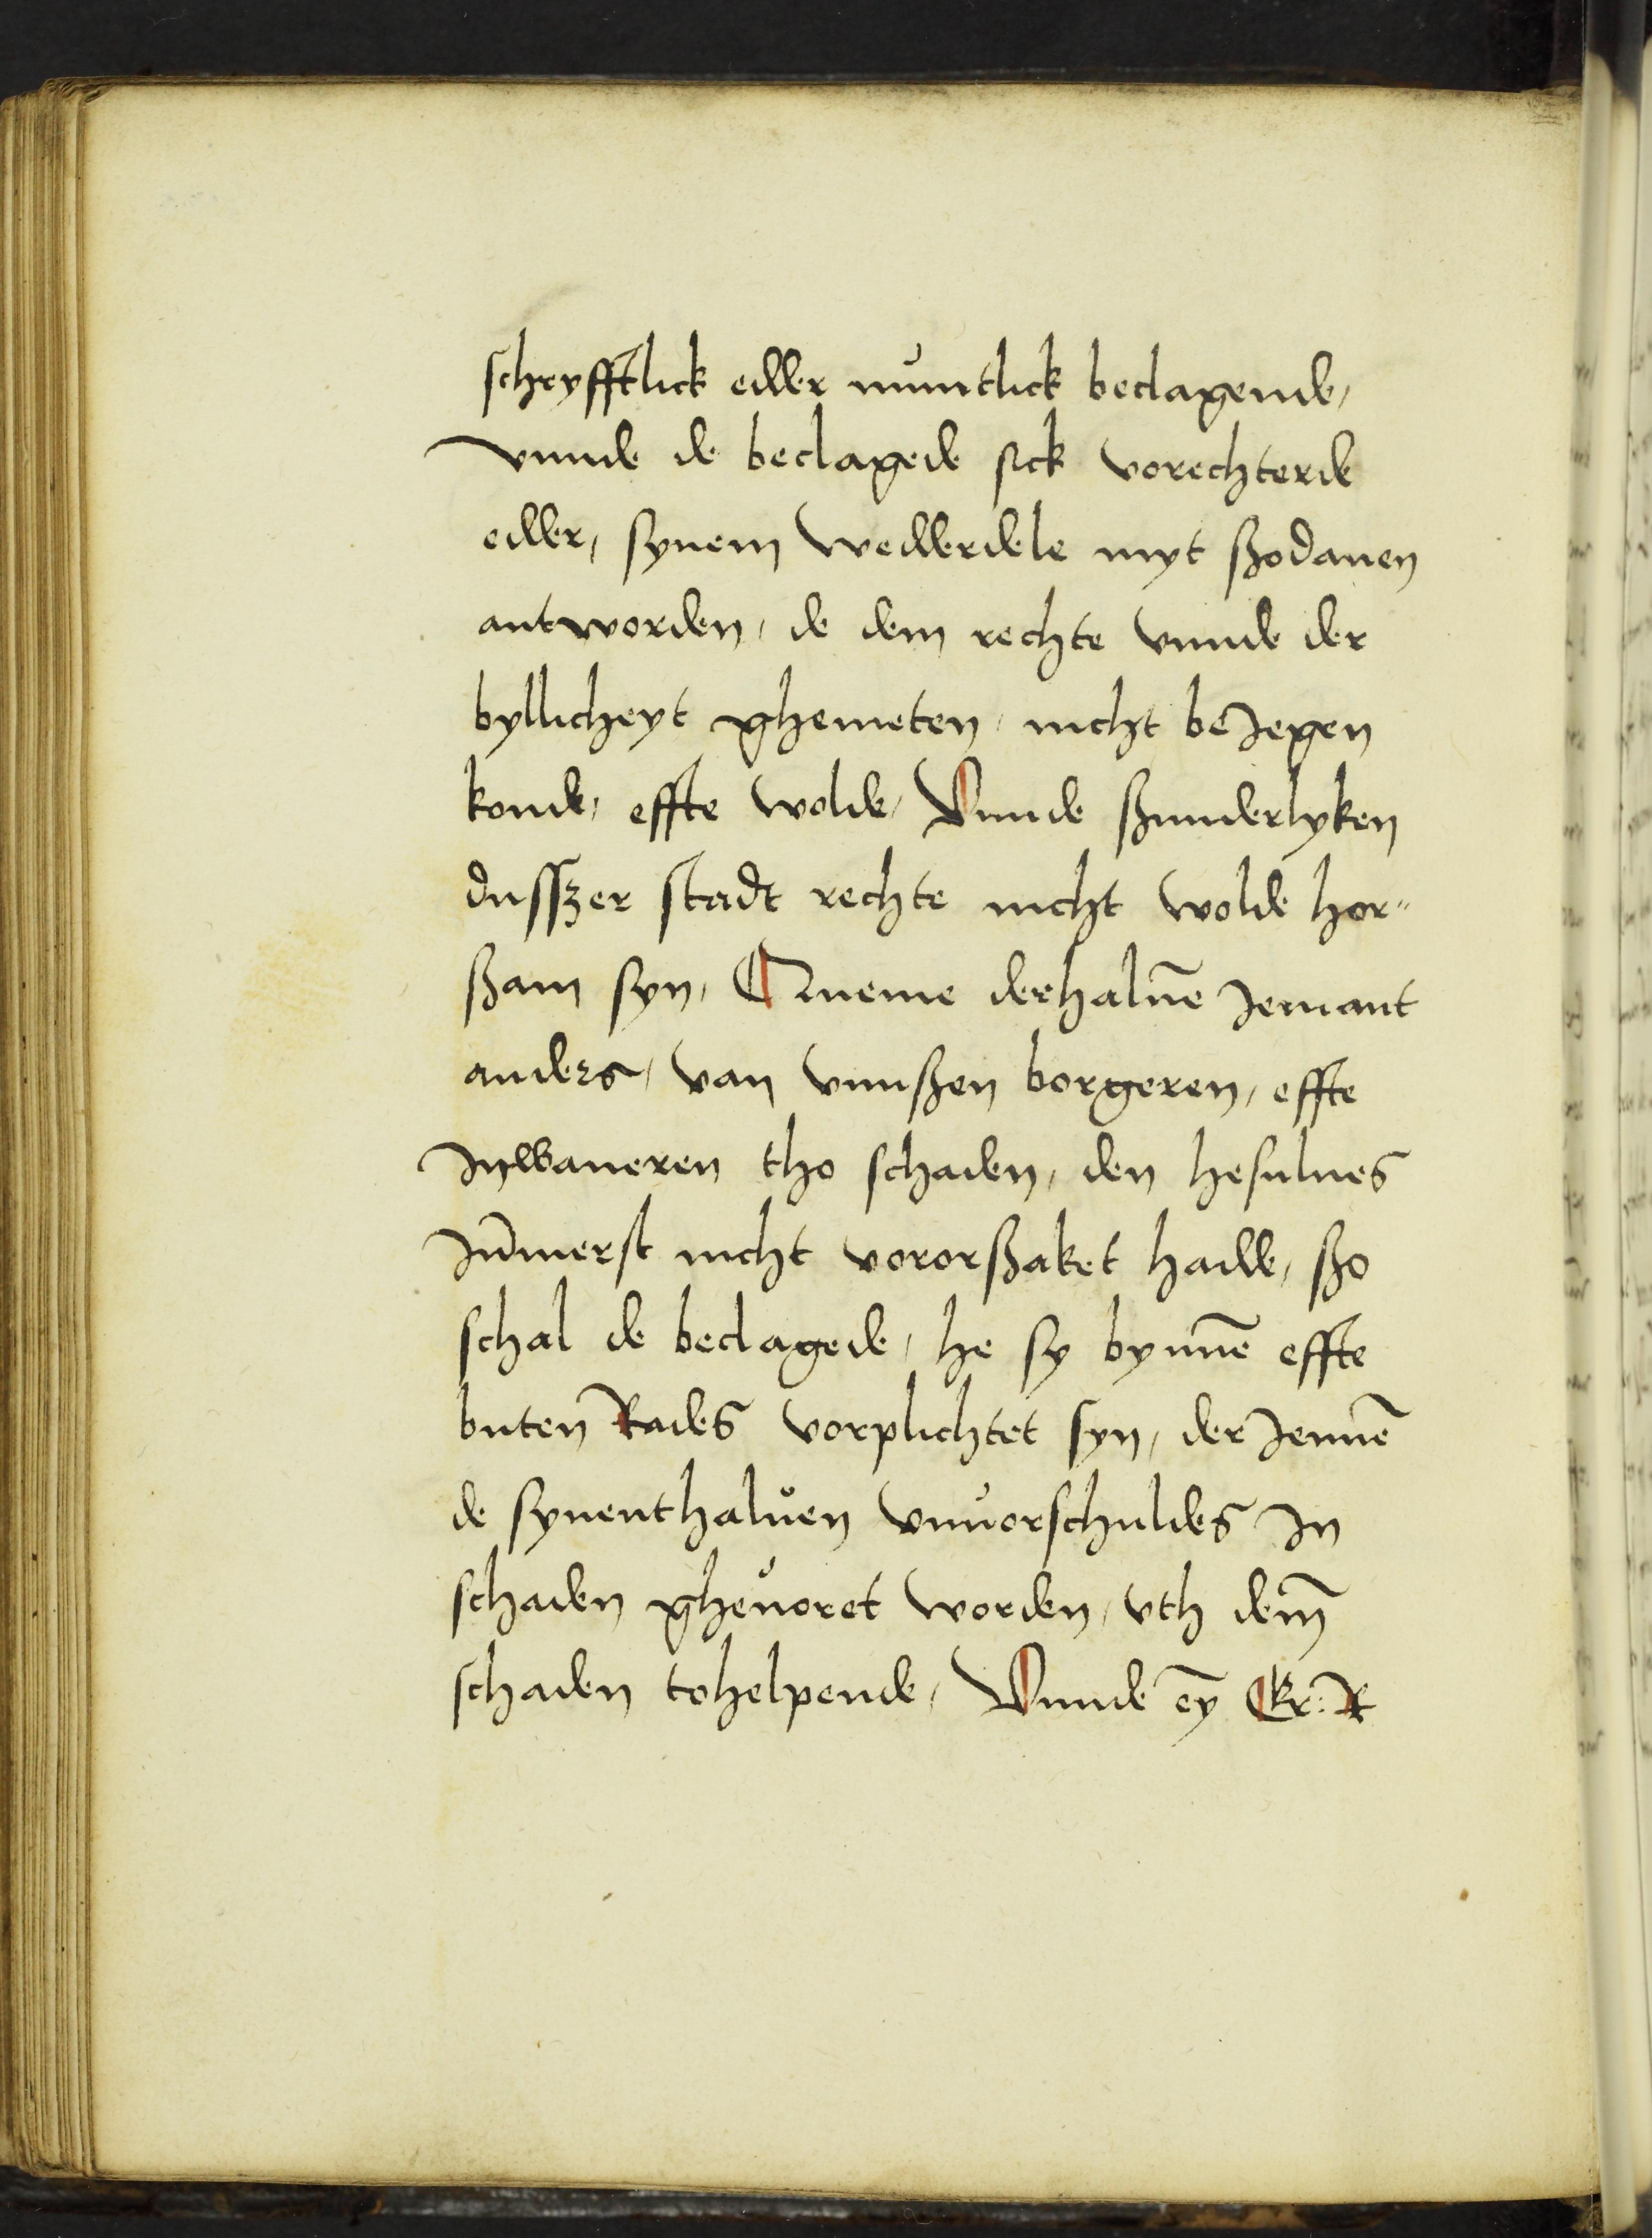 schryfftlick edder muntlick beclagende,
vnnde de beclagede sick vorechterde
edder, synem wedderdele myt ßodanen
antworden, de dem rechte vnnde der
byllicheyt ghemeten, nicht beJegen
konde, effte wolde, Vnnde ßunderlyken
dusszer stadt rechte nicht wolde hor⸗
ßam syn, Queme derhaluē Jemant
anders, van vnnßen borgeren, effte
Jnwaneren tho schaden, den hesulues
Jūmerst nicht vororßaket hadde, ßo
schal de beclagede, he sy bynnē effte
buten Rades vorplichtet syn, der Jennē
de synenthaluen vnuorschuldes Jn
schaden gheuoret worden, vth dem̄
schaden tohelpende, Vnnde eȳ Er: R